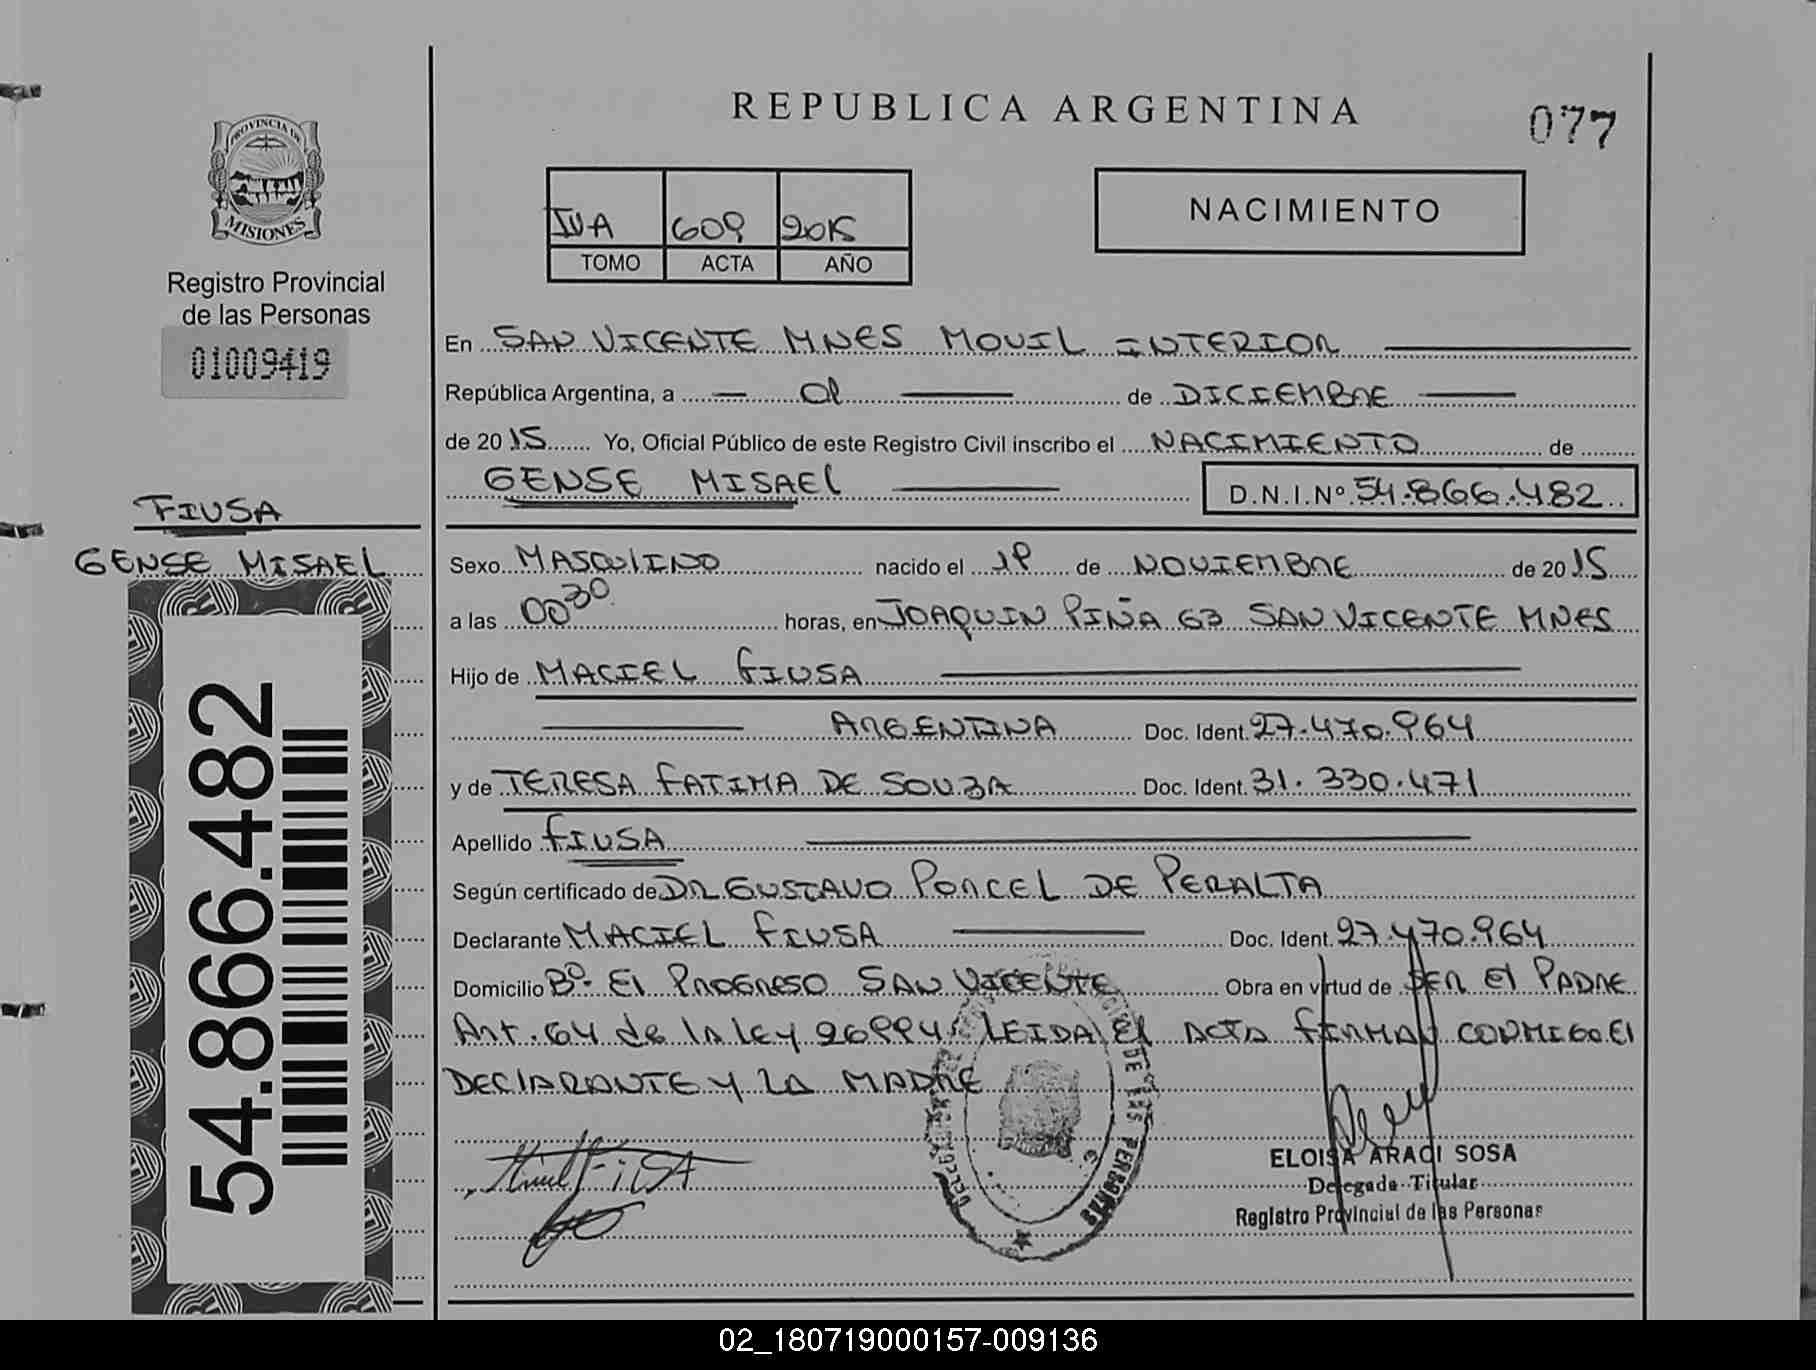 REPUBLICA ARGENTINA
077
PROVINCIA DE
MISIONES
Registro Provincial
de las Personas
01009419
IVA 609 2015
TOMO ACTA AÑO
NACIMIENTO
En SAN VICENTE MNES MOVIL INTERIOR
República Argentina, a 01 de DICIEMBRE
de 2015 Yo, Oficial Público de este Registro Civil inscribo el NACIMIENTO de
GENSE MISAEL D.N.I.Nº 54.866.482
FIUSA
GENSE MISAEL
54.866.482
Sexo MASCULINO nacido el 19 de NOVIEMBRE de 2015
a las 00 30 horas, en JOAQUIN PIÑA 63 SAN VICENTE MNES
Hijo de MACIEL FIUSA
ARGENTINA Doc. Ident. 27.470.964
y de TERESA FATIMA DE SOUZA Doc. Ident. 31.330.471
Apellido FIUSA
Según certificado de DR GUSTAVO PORCEL DE PERALTA
Declarante MACIEL FIUSA Doc. Ident. 27.470.964
Domicilio Bº El PROGRESO SAN VICENTE Obra en virtud de SER El PADRE
Art. 64 de la ley 26994 LEIDA El ACTA FIRMAN CONMIGO El
DEClARANTE Y LA MADRE
DE LAS PERSONAS
ELOISA ARACI SOSA
Delegada Titular
Registro Provincial de las Personas
02_180719000157-009136